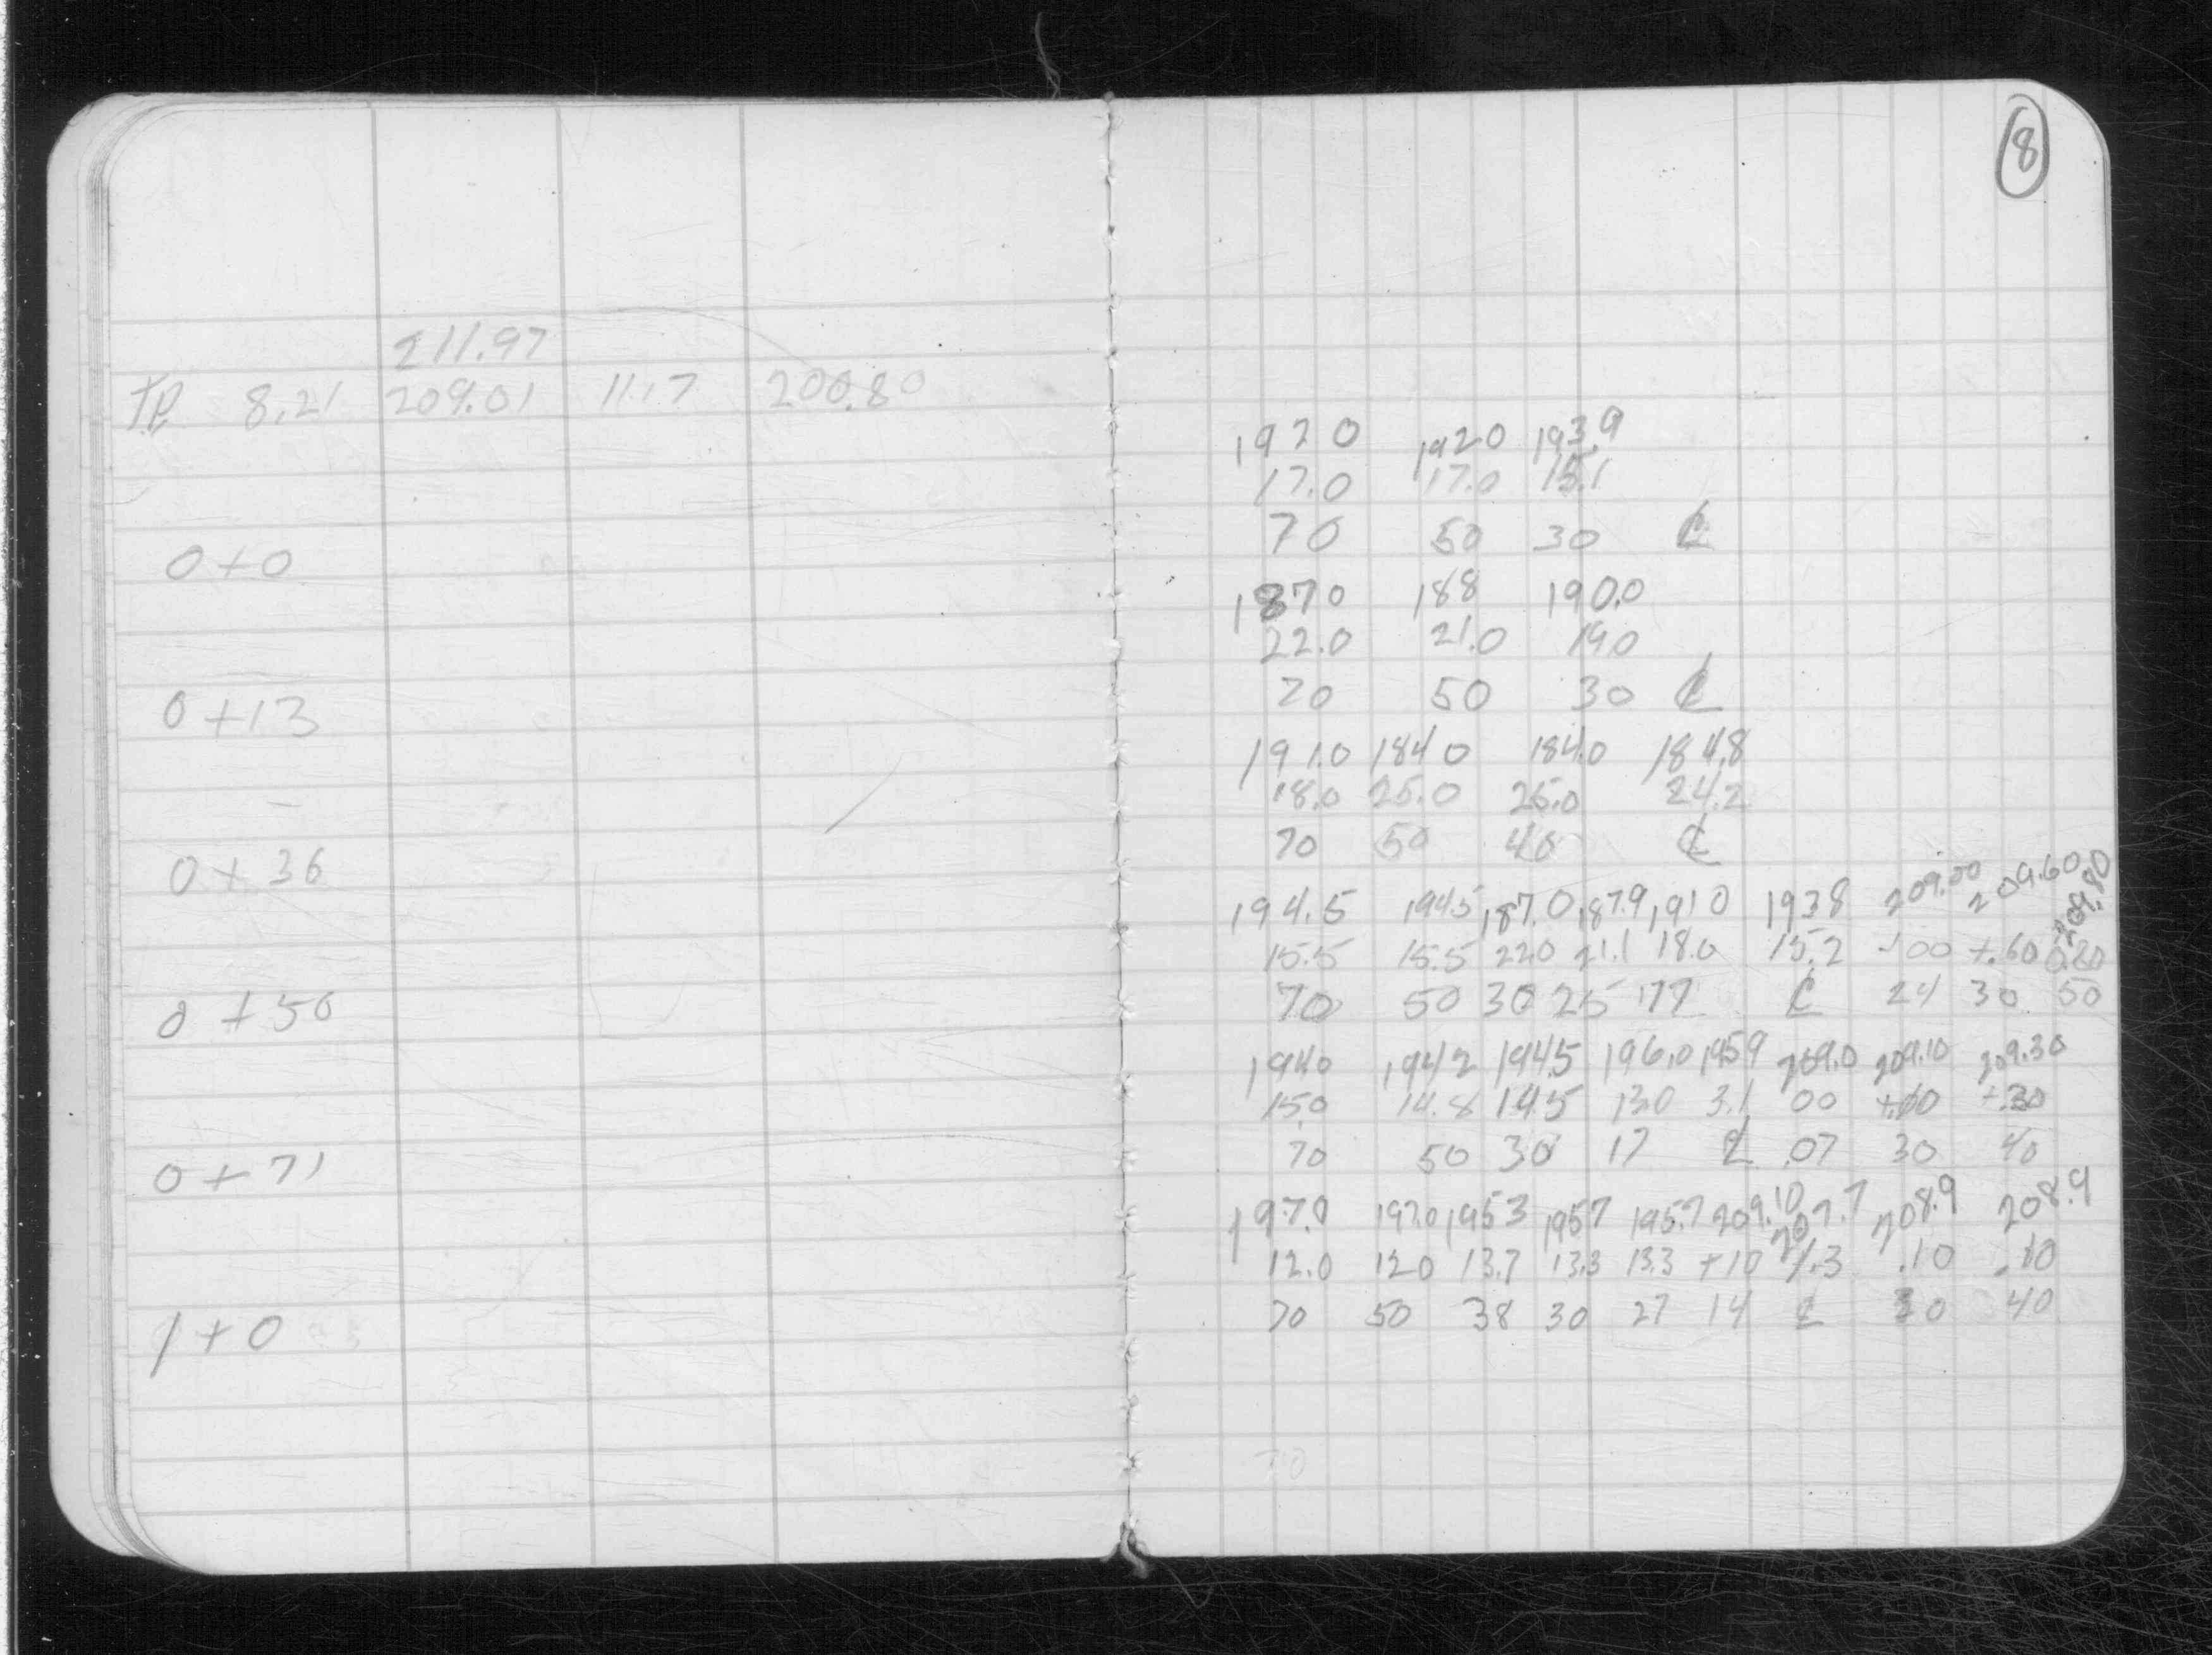 211.97
T.P. 8.21 209.01 11.17 200.80
0+0
0+13
0+36
0+50
0+71
1+0
8
1920 1920 193.9
17.0 17.0 15.1
70 50 30 ℄
1870 188 190.0
22.0 21.0 19.0
70 50 30 ℄
191.0 184.0 184.0 184.8
18.0 25.0 25.0 24.2
70 50 40 ℄
194.5 194.5 187.0 187.9 191.0 193.8 209.00 209.60 209.80
15.5 15.5 22.0 21.1 18.0 15.2 00 +.60 0.80
70 50 30 25 17 ℄ 24 30 50
194.0 194.2 194.5 196.0 195.9 209.0 209.10 209.30
15.0 14.8 14.5 13.0 3.1 00 +.10 +.30
70 50 30 17 ℄ .07 30 40
197.0 197.0 195.3 195.7 195.7 209.10 207.7 208.9 208.9
12.0 12.0 13.7 13.3 13.3 +10 1.3 .10 .10
70 50 38 30 27 14 ℄ 30 40
70